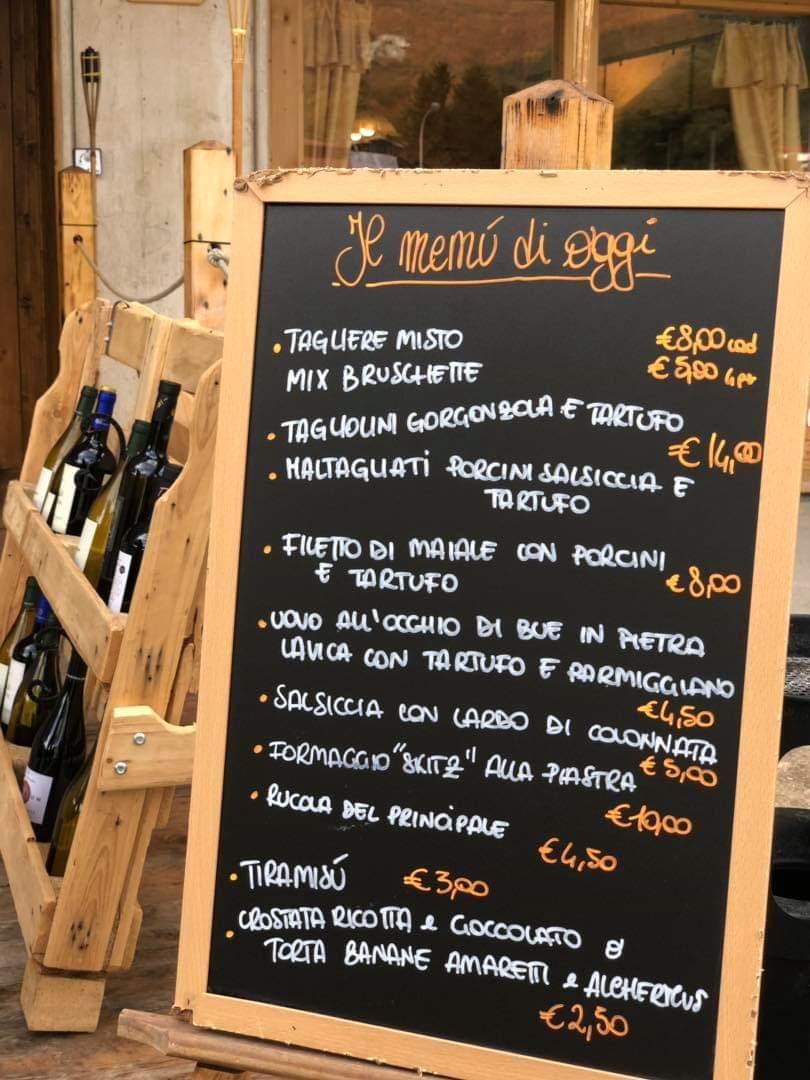 Il menú di oggi
• TAGLIERE MISTO €8,00 cad
MIX BRUSCHETTE €5,00
• TAGLIOLINI GORGONZOLA E TARTUFO
€14,00
• MALTAGLIATI PORCINI SALSICCIA E
TARTUFO
• FILETTO DI MAIALE CON PORCINI
E TARTUFO €8,00
• UOVO ALL'OCCHIO DI BUE IN PIETRA
LAVICA CON TARTUFO E PARMIGGIANO
€4,50
• SALSICCIA CON LARDO DI COLONNATA
€5,00
• FORMAGGIO "SKITZ" ALLA PIASTRA
€10,00
• RUCOLA DEL PRINCIPALE
€4,50
• TIRAMISÚ €3,00
• CROSTATA RICOTTA e CIOCCOLATO
TORTA BANANE AMARETTI e ALCHERMUS
€2,50